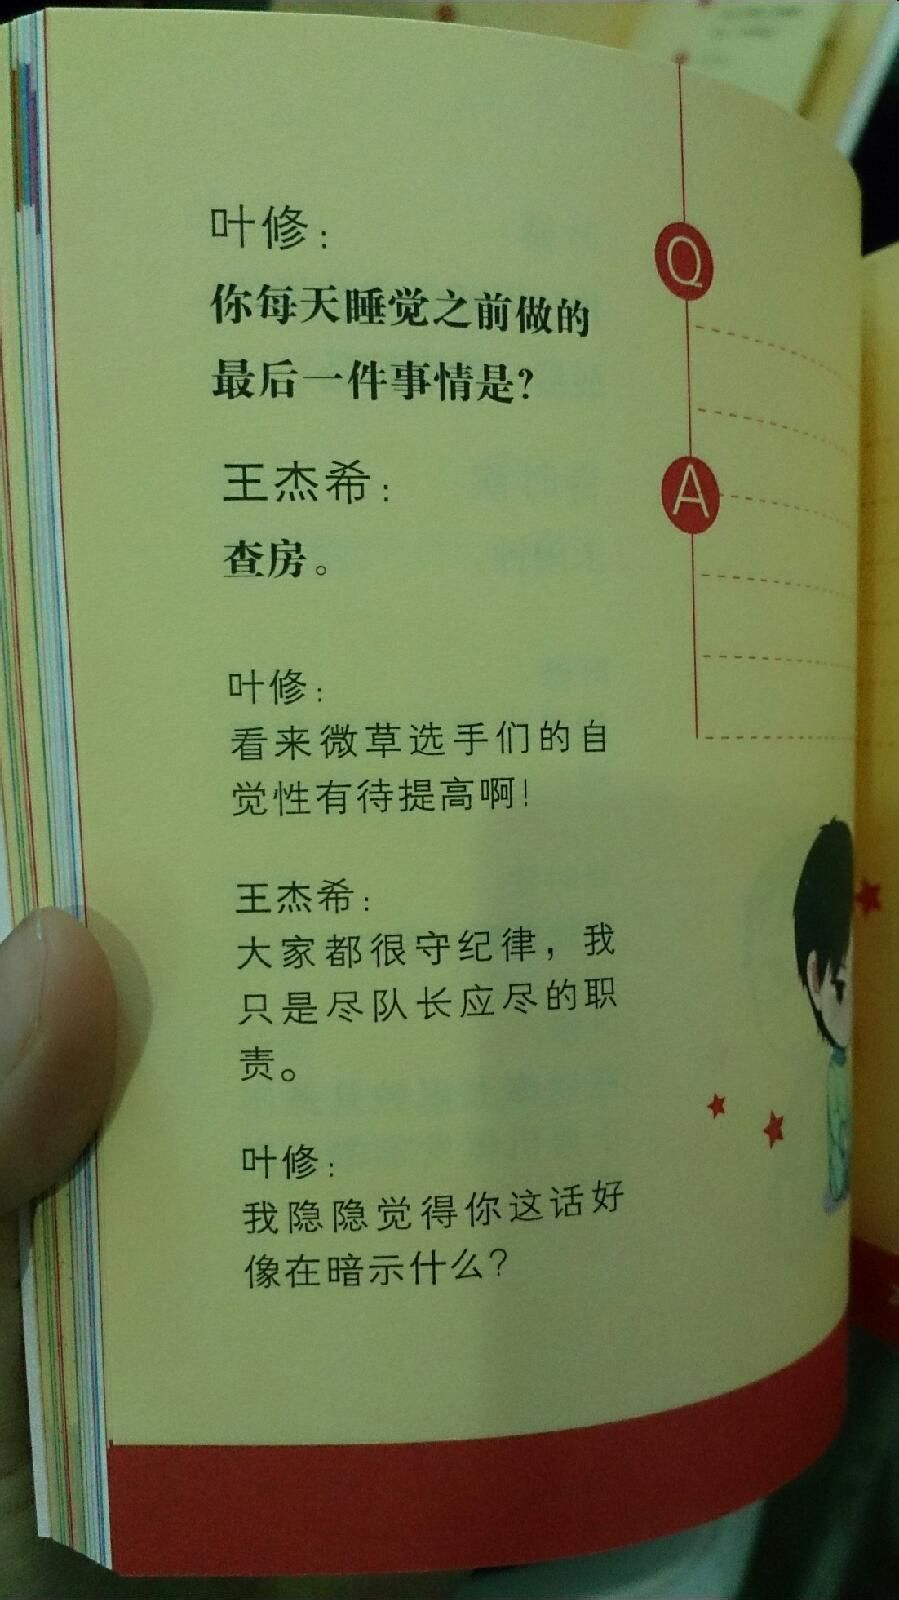 叶修：
你每天睡觉之前做的
最后一件事情是？
王杰希：
查房。
叶修：
看来微草选手们的自
觉性有待提高啊！
王杰希：
大家都很守纪律，我
只是尽队长应尽的职
责。
叶修：
我隐隐觉得你这话好
像在暗示什么？
Q
A